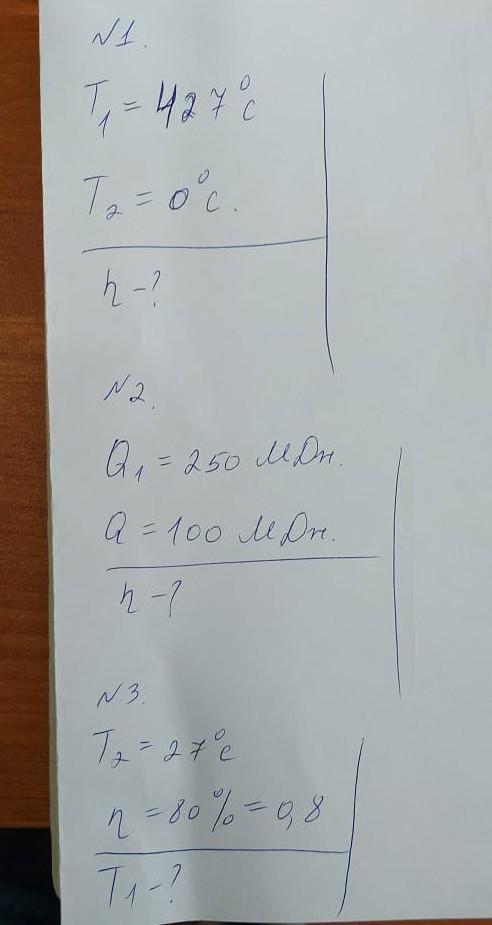 №1.
T₁ = 427°C
T₂ = 0°C.
η - ?
№2.
Q₁ = 250 МДж.
Q = 100 МДж.
η - ?
№3.
T₂ = 27°C
η = 80% = 0,8
T₁ - ?